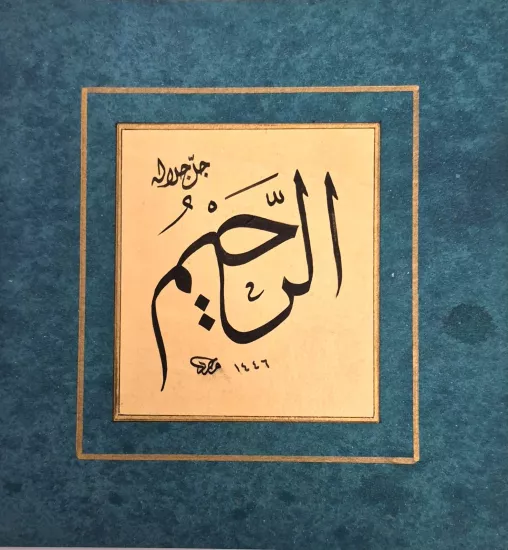 جلّ جلاله
الرَّحْيمُ
١٤٤٦